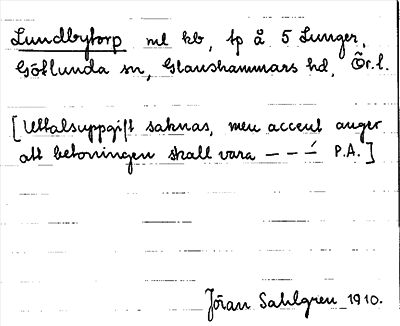 Lundbytorp ml kb, tp å 5 Lunger,
Götlunda sn, Glanshammars hd, Ör. l.
[Uttalsuppgift saknas, men accent anger
att betoningen skall vara – – –́ P.A.]
Jöran Sahlgren 1910.